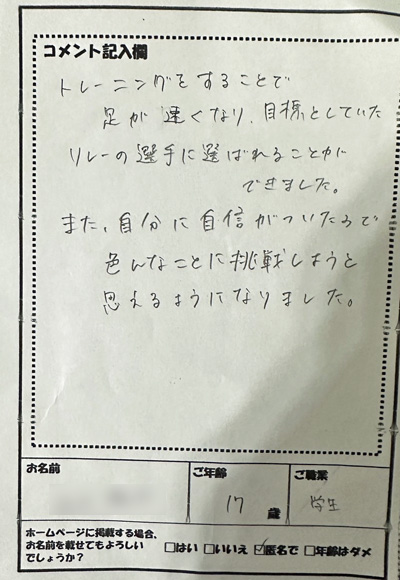 コメント記入欄
トレーニングをすることで
足が速くなり、目標としていた
リレーの選手に選ばれることが
できました。
また、自分に自信がついたので
色んなことに挑戦しようと
思えるようになりました。
お名前 ご年齢 ご職業
17歳 学生
ホームページに掲載する場合、
お名前を載せてもよろしい
でしょうか？
□はい □いいえ ☑匿名で □年齢はダメ